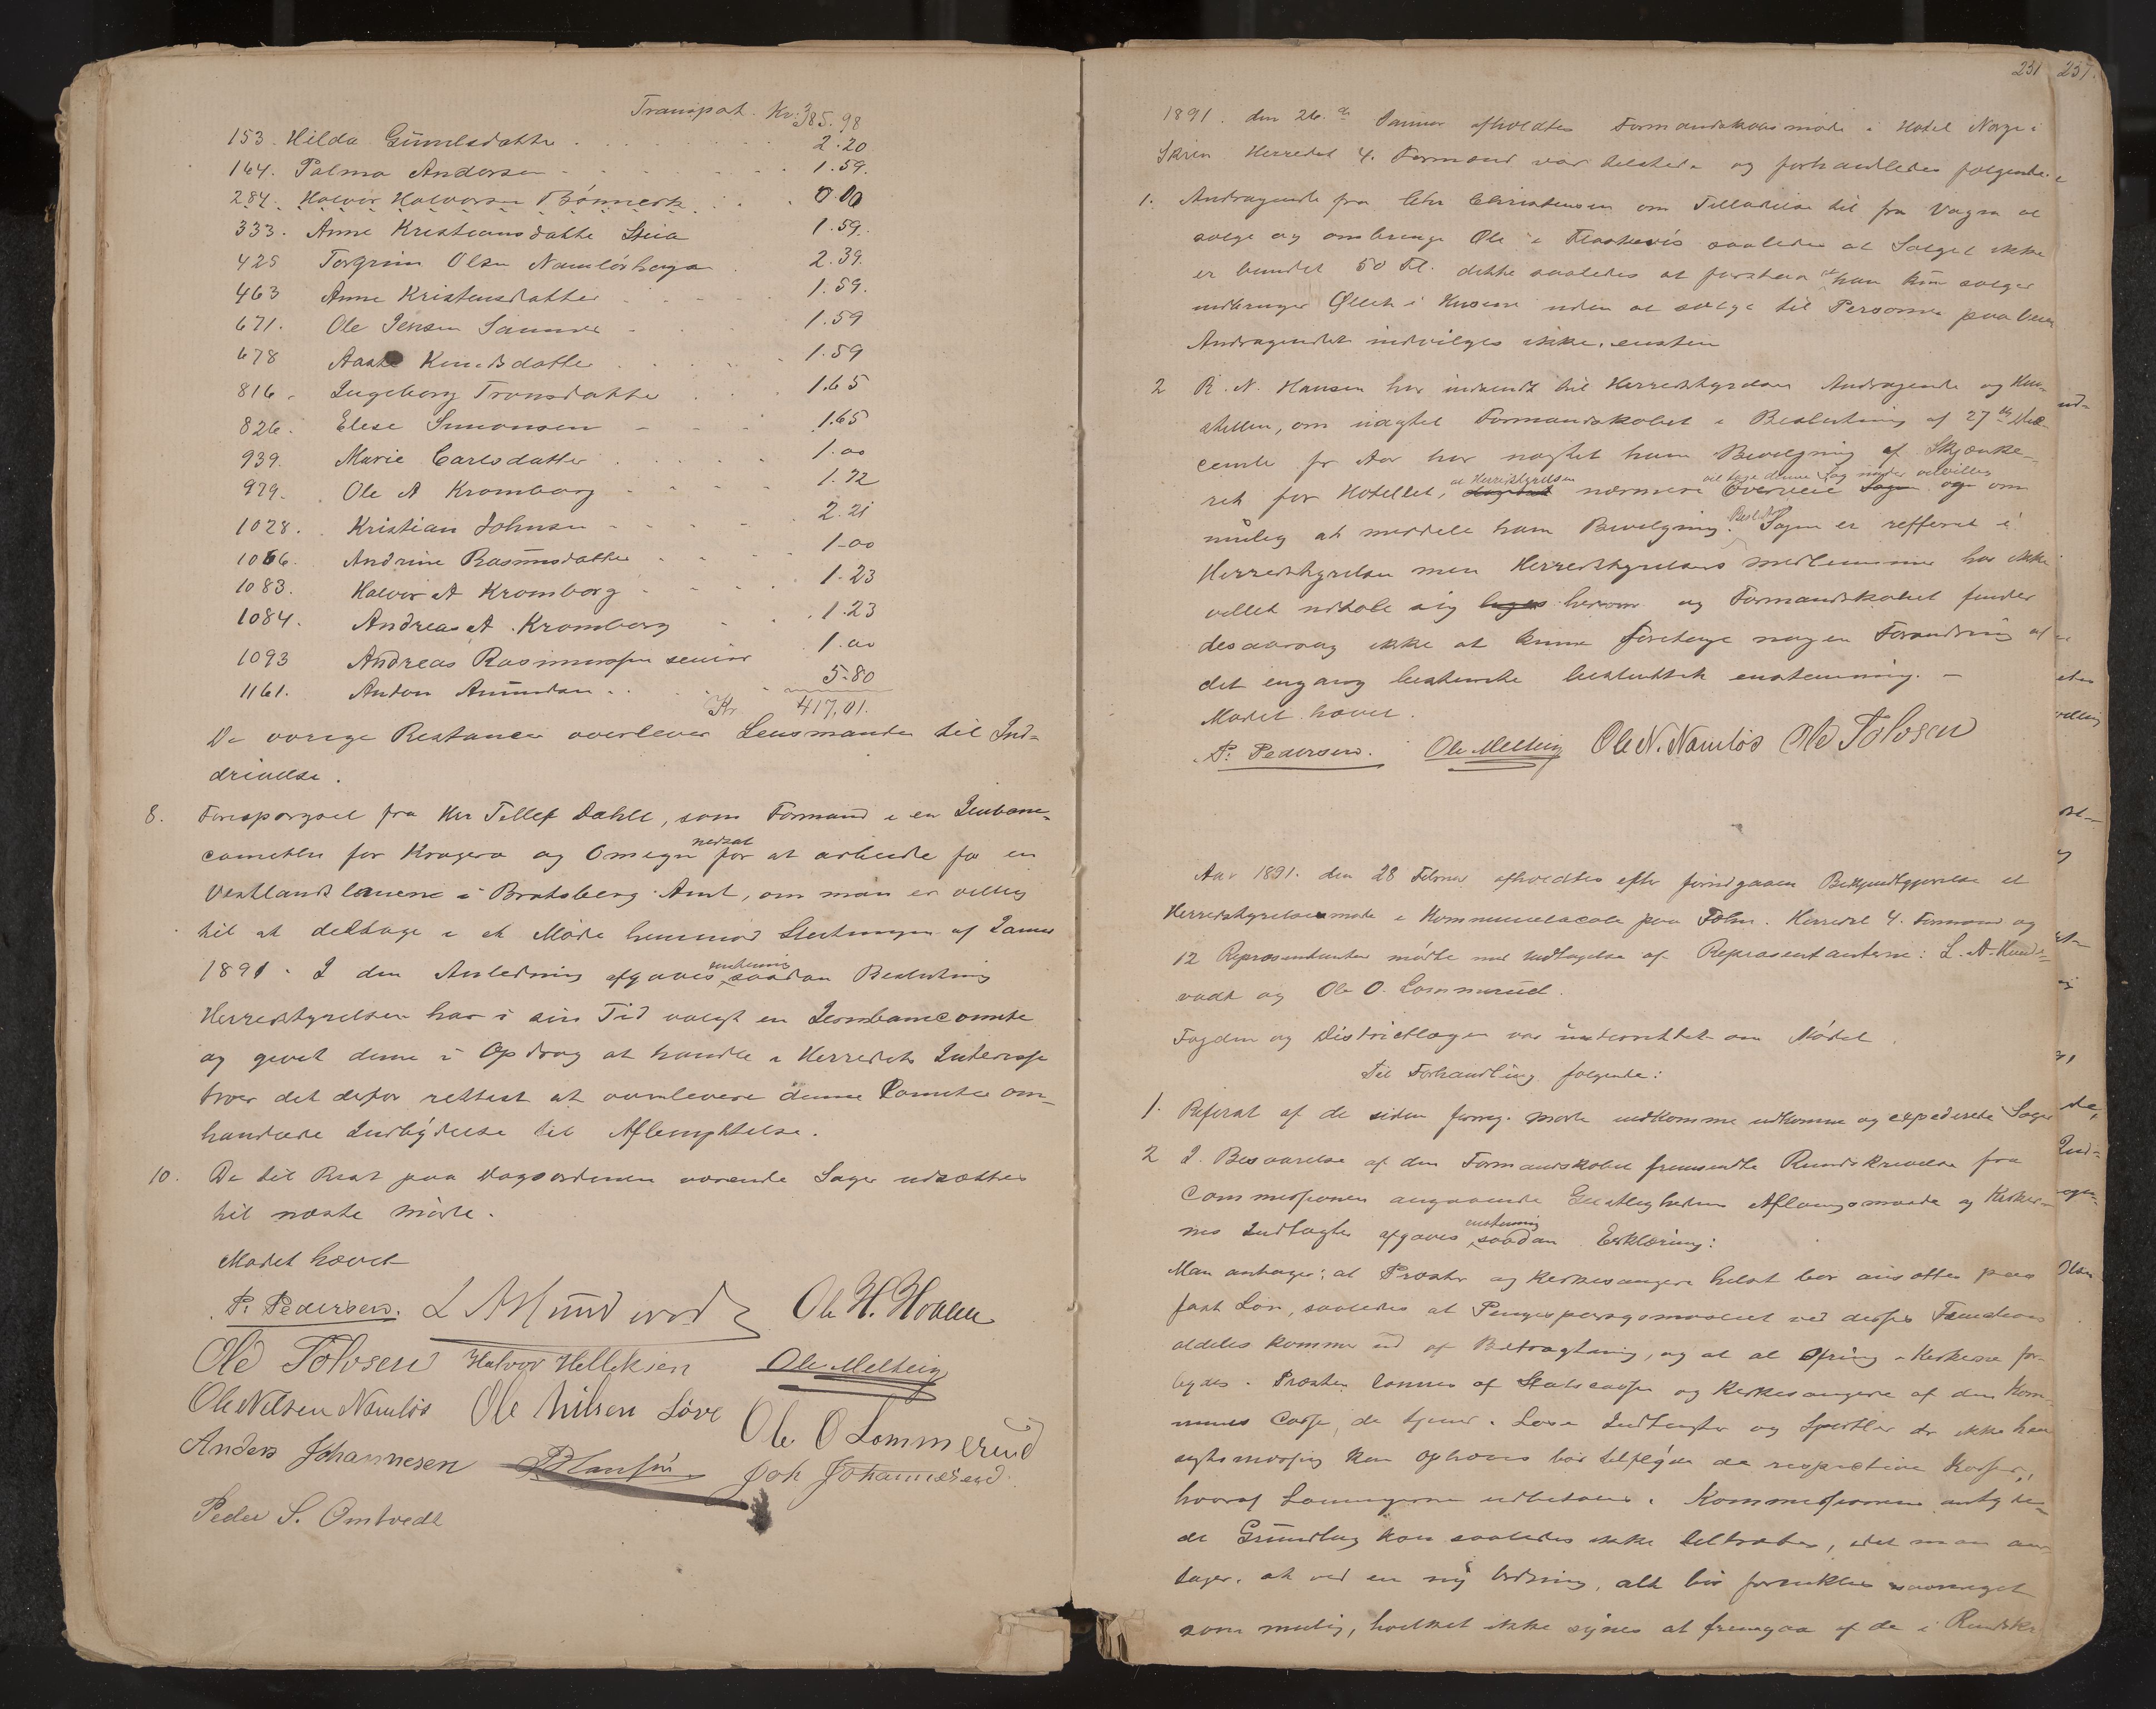 Transport. Kr: 385.98
153. Hilda Gunulsdatter 2.20
164. Palma Andersen 1.59.
284. Halvor Halvorsen 0.00
333. Anne Kristiansdatter 1.59.
425 Torgrim Olsen 2.39.
463 Anne Kristensdatter 1.59.
671. Ole Jensen 1.59
678 Aaste Knudsdatter 1.59
816. Ingeborg Tronsdatter 1.65
826. Elise Simonsen 1.65
939. Marie Carlsdatter 1.00
979. Ole A Kromborg 1.22
1028. Kristian Johnsen 2.21
1066. Andrine Rasmusdatter 1.00
1083. Halvor A Kromborg 1.23
1084. Andreas A. Kromborg 1.23
1093 Andreas Rasmussen senior 1.00
1161. Anton Amundsen 5.80
Kr 417,01.
De øvrige Restancer overlever Lensmanden til Ind=
drivelse.
8. Forespørgsel fra Hr Tellef Dahll, som Formand i en Jernbane-
comitee for Kragerø og Omegn nedsat for at arbeide for en
Vestlandsbanen i Bratsberg Amt, om man er villig
til at deltage i et Møde henimod Slutningen af Januar
1891. I den Anledning afgaves enstemmig saadan Beslutning
Herredstyrelsen har i sin Tid valgt en Jernbanecomite
og givet denne i Opdrag at handle i Herredets Interesse
tror det derfor rettest at overlevere denne Comitee om-
handlede Indbydelse til Afbenyttelse.
10. De til Rest paa Dagsordenen værende Sager udsættes
til næste møde.
Mødet hævet
P. Pedersen. Ole H. Holden
Ole Tolvsen Halvor Hellekjen Ole Melteig
Ole Nilsen Namløs Ole Nilsen Løve Ole O Lommerud
Anders Johannesen Joh Johannesen
Peder S. Omtvedt
231 237.
1891. den 26. de Januar afholdtes Formandskabsmøde i Hotel Norge i
Skien Herredet 4. Formænd var tilstede og forhandledes følgende
1. Andragende fra Chr Christensen om Tilladelse til fra Vogn at
sælge og ombringe Øl i Flaskevis saaledes at Salget ikke
er bundet 50 Fl. dette saaledes at forstaa at han kun sælger
ombringer Øllet i Husene uden at sælge til Personer paa
Andragendet indvilges ikke. ensten
2 R. N. Hansen har indsendt til Herredstyrelsen Andragende og Hen-
stillen, om nægtet Formandskabet i Beslutning af 27de Dec
cember f Aar har nægtet ham Bevilgning af Skjænke-
ret for Hotellet, at Herredstyrelsen nærmere overveie at tage denne Sag og om
mulig at meddele ham Bevilgning. Besl Sagen er refferet i
Herredstyrelsen men Herredstyrelsens medlemmer har ikke
villet udtale sig herom og Formandskabet finder
desaarsag ikke at kunne foretage nogen Forandring af
det engang bestemte besluttet enstemmig. -
Mødet hævet.
P. Pedersen. Ole Melteig Ole N. Namløs Ole Tolvsen
Aar 1891. den 28 Februar afholdtes efter foregaaen Bekjendtgjørelse et
Herredstyrelsesmøde i Kommunelocale paa Holm. Herredet 4. Formænd og
12 Repræsentanter mødte med Undtagelse af Repræsentanterne: L. A. Mund=
vald og Ole O. Lommerud.
Fogden og Districtlægen var underrettet om Mødet.
Til Forhandling følgende:
1. Referat af de siden forrige møde indkomne udkomne og expederede Sager
2 I Besvarelse af den Formandskabet fremsendte Rundskrivelse fra
Commissionen angaaende Geistlighedens Aflønningsmaade og Kirker-
nes Indtægter afgaves enstemmig saadan Erklæring:
Man antager: at Prester og Kirkesangere helst bør ansættes paa
fast Løn, saaledes at Pengespørgsmaalet ved disses Function
aldeles kommer ud af Betragtning, og at al Ofring i Kirkerne for-
bydes. Presten lønnes af Statscassen og Kirkesangere af den Kom-
munes Casse, de tjener. Løse Indtægter og Sportler der ikke hen
sigtsmæssig kan ophæves bør tilflyde de respective Kasser,
hvoraf Lønningerne udbetales. Kommissionens antyde-
de Grundlag kan saaledes ikke tiltrædes, idet man an-
tager, at ved en ny Ordning, alt bør forenkles saameget
som mulig, hvilket ikke synes at fremgaa af de i Rundskr